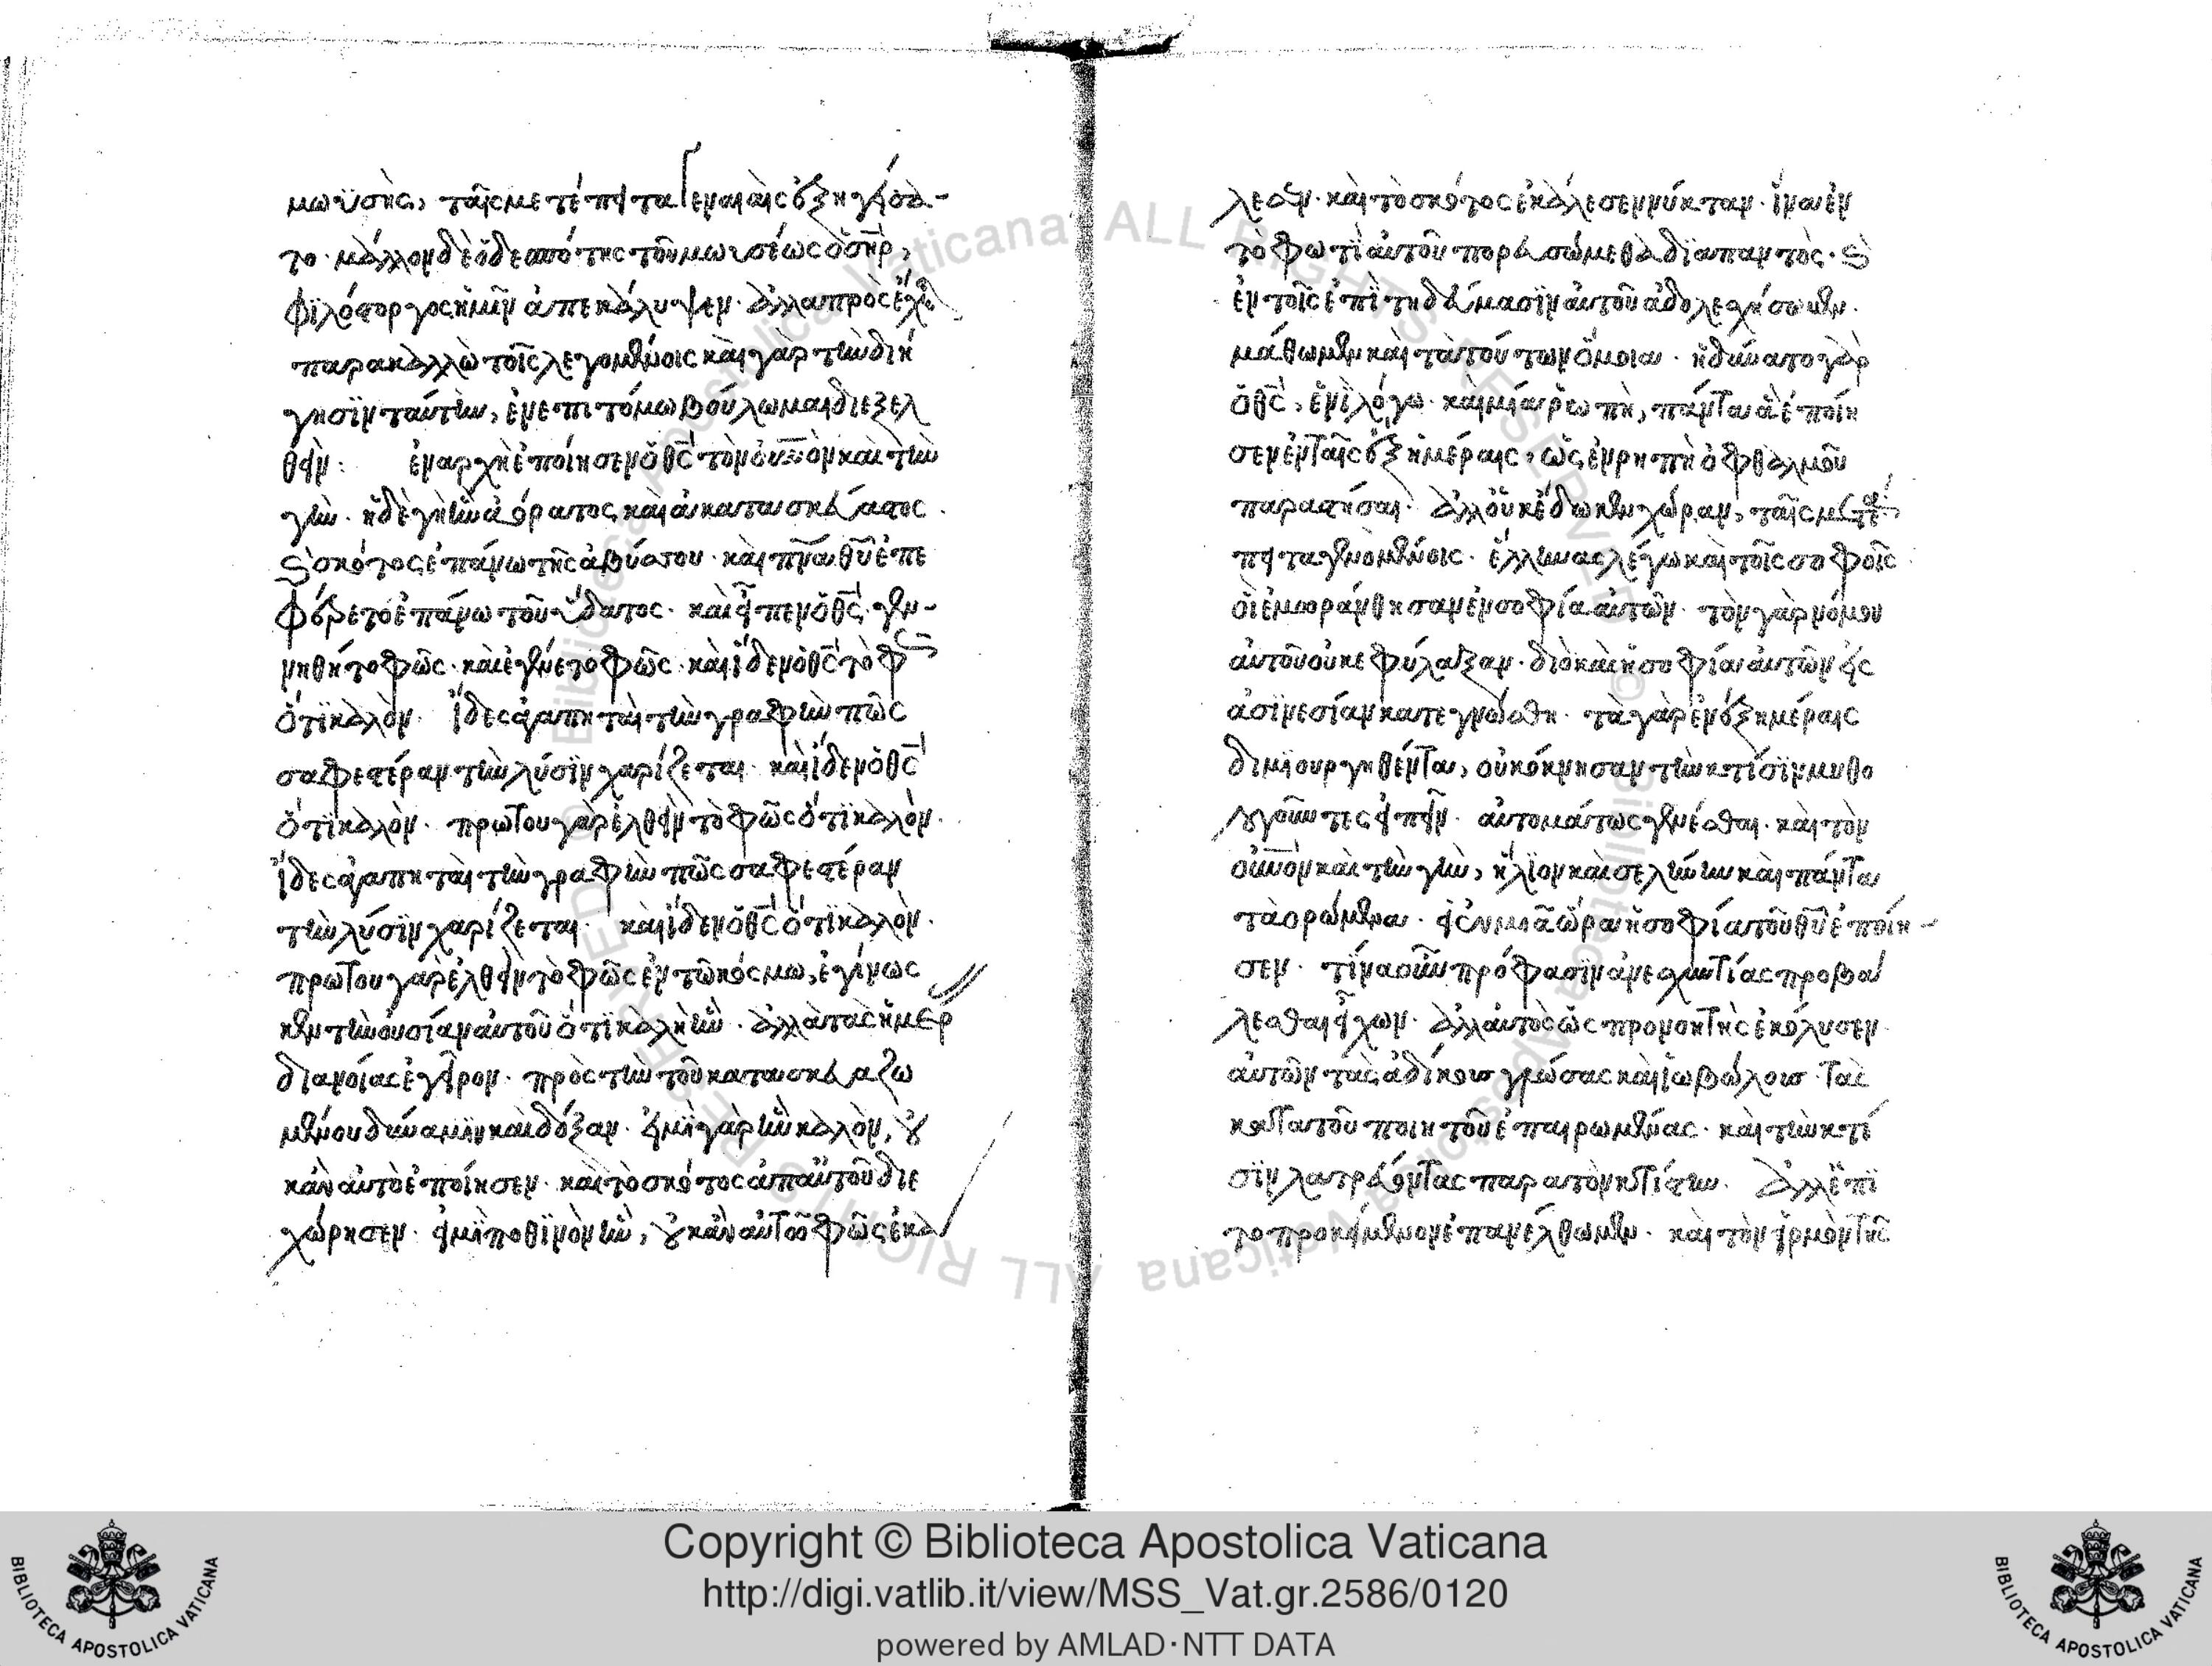 μωϋσῆς, ταῖς μετέπειτα γενεαῖς ἐξηγήσα-
το· μάλλον δὲ ὁ δεσπότης τοῦ μωυσέως ὁ σὴρ,
φϊλόστοργος ἡμῖν ἀπεκάλυψεν· ἀλλα πρὸς
παρακαλλῶ τοῖς λεγομένοις καὶ γὰρ τὴν διή
γησϊν ταύτην, ἐν επιτόμω βούλωμαι διεξελ
θεῖν: ἐν αρχῆ ἐποίησεν ὁ θς τὸν οὐνον καὶ τὴν
γῆν· ἡ δὲ γῆ ἦν ἀόρατος καὶ ἀκατασκεύαστος·
κ σκότος ἐπάνω τῆς ἀβύσσου· καὶ πνα θυ ἐπε
φέρετο ἐπάνω τοῦ ὕδατος· καὶ εἶπεν ὁ θς, γεν-
νηθήτο φῶς· καὶ ἐγένετο φῶς· καὶ ἴδεν ὁ θς τὸ φς
ὅτϊ καλὸν· ἴδες ἀγαπητὲ τὴν γραφὴν πῶς
σαφεστέραν τὴν λύσϊν χαρίζεται· καὶ ἴδεν ὁ θς
ὅτϊ καλὸν· πρωτου γὰρ ἐλθεῖν τὸ φῶς ὅτϊ καλόν·
ἴδες ἀγαπητὲ τὴν γραφὴν πῶς σαφεστέραν
τὴν λύσϊν χαρίζεται· καὶ ἴδεν ὁ θς ὅτϊ καλὸν·
πρωτου γὰρ ἐλθεῖν τὸ φῶς ἐν τῶ κόσμω, ἐγίνως
κεν τὴν οὐσίαν αὐτοῦ ὅτϊ καλὴ ἦν· ἀλλὰ τὰς ἡμερ
διανοίας ἐγεῖρον· πρὸς τὴν τοῦ κατασκευαζω
μένου δύναμϊν καὶ δόξαν· εἰ μὶ γὰρ ἦν καλὸν, οὐ
κἀν αὐτὸ ἐποίησεν· καὶ τὸ σκότος ἀπ αὐτοῦ διε
χώρησεν· εἰ μϊ ποθϊνὸν ἦν, οὐκ ἀν αὐτοο φῶς ἐκα
λεσεν· καὶ τὸ σκότος ἐκάλεσεν νύκταν· ἵνα ἐν
τὸ φωτὶ αὐτοῦ πορευσώμεθα δϊαπαντὸς· κ
ἐν τοῖς ἐπϊτηδεύμασϊν αὐτοῦ ἀδολεσχήσωμεν·
μάθωμεν καὶ τὰ τούτων ὅμοια· ἠδύνατο γὰρ
ὁ θς, ἐνὶ λόγω· καὶ μία ῥωπὴ, πάντα ἃ ἐποίη
σεν ἐν ταῖς ἓξ ἡμέραις, ὡς ἐν ρηπὴ ὀφθαλμοῦ
παραστῆσαι· ἀλλ οὐκ ἔδωκεν χώραν, ταῖς μετέ
πειτα γενομένοις· ἕλληνας λέγω καὶ τοῖς σοφοῖς
οἱ ἐμωράνθησαν ἐν σοφία αὐτῶν· τὸν γὰρ νόμον
αὐτοῦ οὐκ εφύλαξαν· διὸ καὶ ἡ σοφία αὐτῶν εἰς
ἀσϊνεσίαν κατεγνώσθη· τὰ γὰρ ἐν ἓξ ἡμέραις
διμϊουργηθέντα, οὐκ ὄκνησαν τὴν κτίσϊν μυθο
λογοῦντες εἰπεῖν· αὐτομάτως γενέσθαι· καὶ τὸν
οὐνον καὶ τὴν γῆν, ἥλϊον καὶ σελήνην καὶ πάντα
τὰ ορώμενα· εἰ ἐν μιᾶ ὥρα ἡ σοφία τοῦ θυ ἐποίη-
σεν· τίνα οὖν πρόφασϊν ἀνεσχυντίας προβα
λεσθαι εἶχων· ἀλλ αὐτὸς ὡς προνοητὴς ἐκόλυσεν
αὐτῶν τὰς ἀδίκους γλώσας καὶ ἰωβώλους· τας
κατα τοῦ ποιητοῦ ἐπαιρωμένας· καὶ τὴν κτί
σϊν λατρεύοντας παρα τὸν κτίστην· ἀλλ ἐπϊ
το προκείμενον ἐπανέλθωμεν· καὶ τὸν εἱρμὸν τῆς
Copyright © Biblioteca Apostolica Vaticana
http://digi.vatlib.it/view/MSS_Vat.gr.2586/0120
powered by AMLAD·NTT DATA
BIBLIOTECA APOSTOLICA VATICANA
BIBLIOTECA APOSTOLICA VATICANA